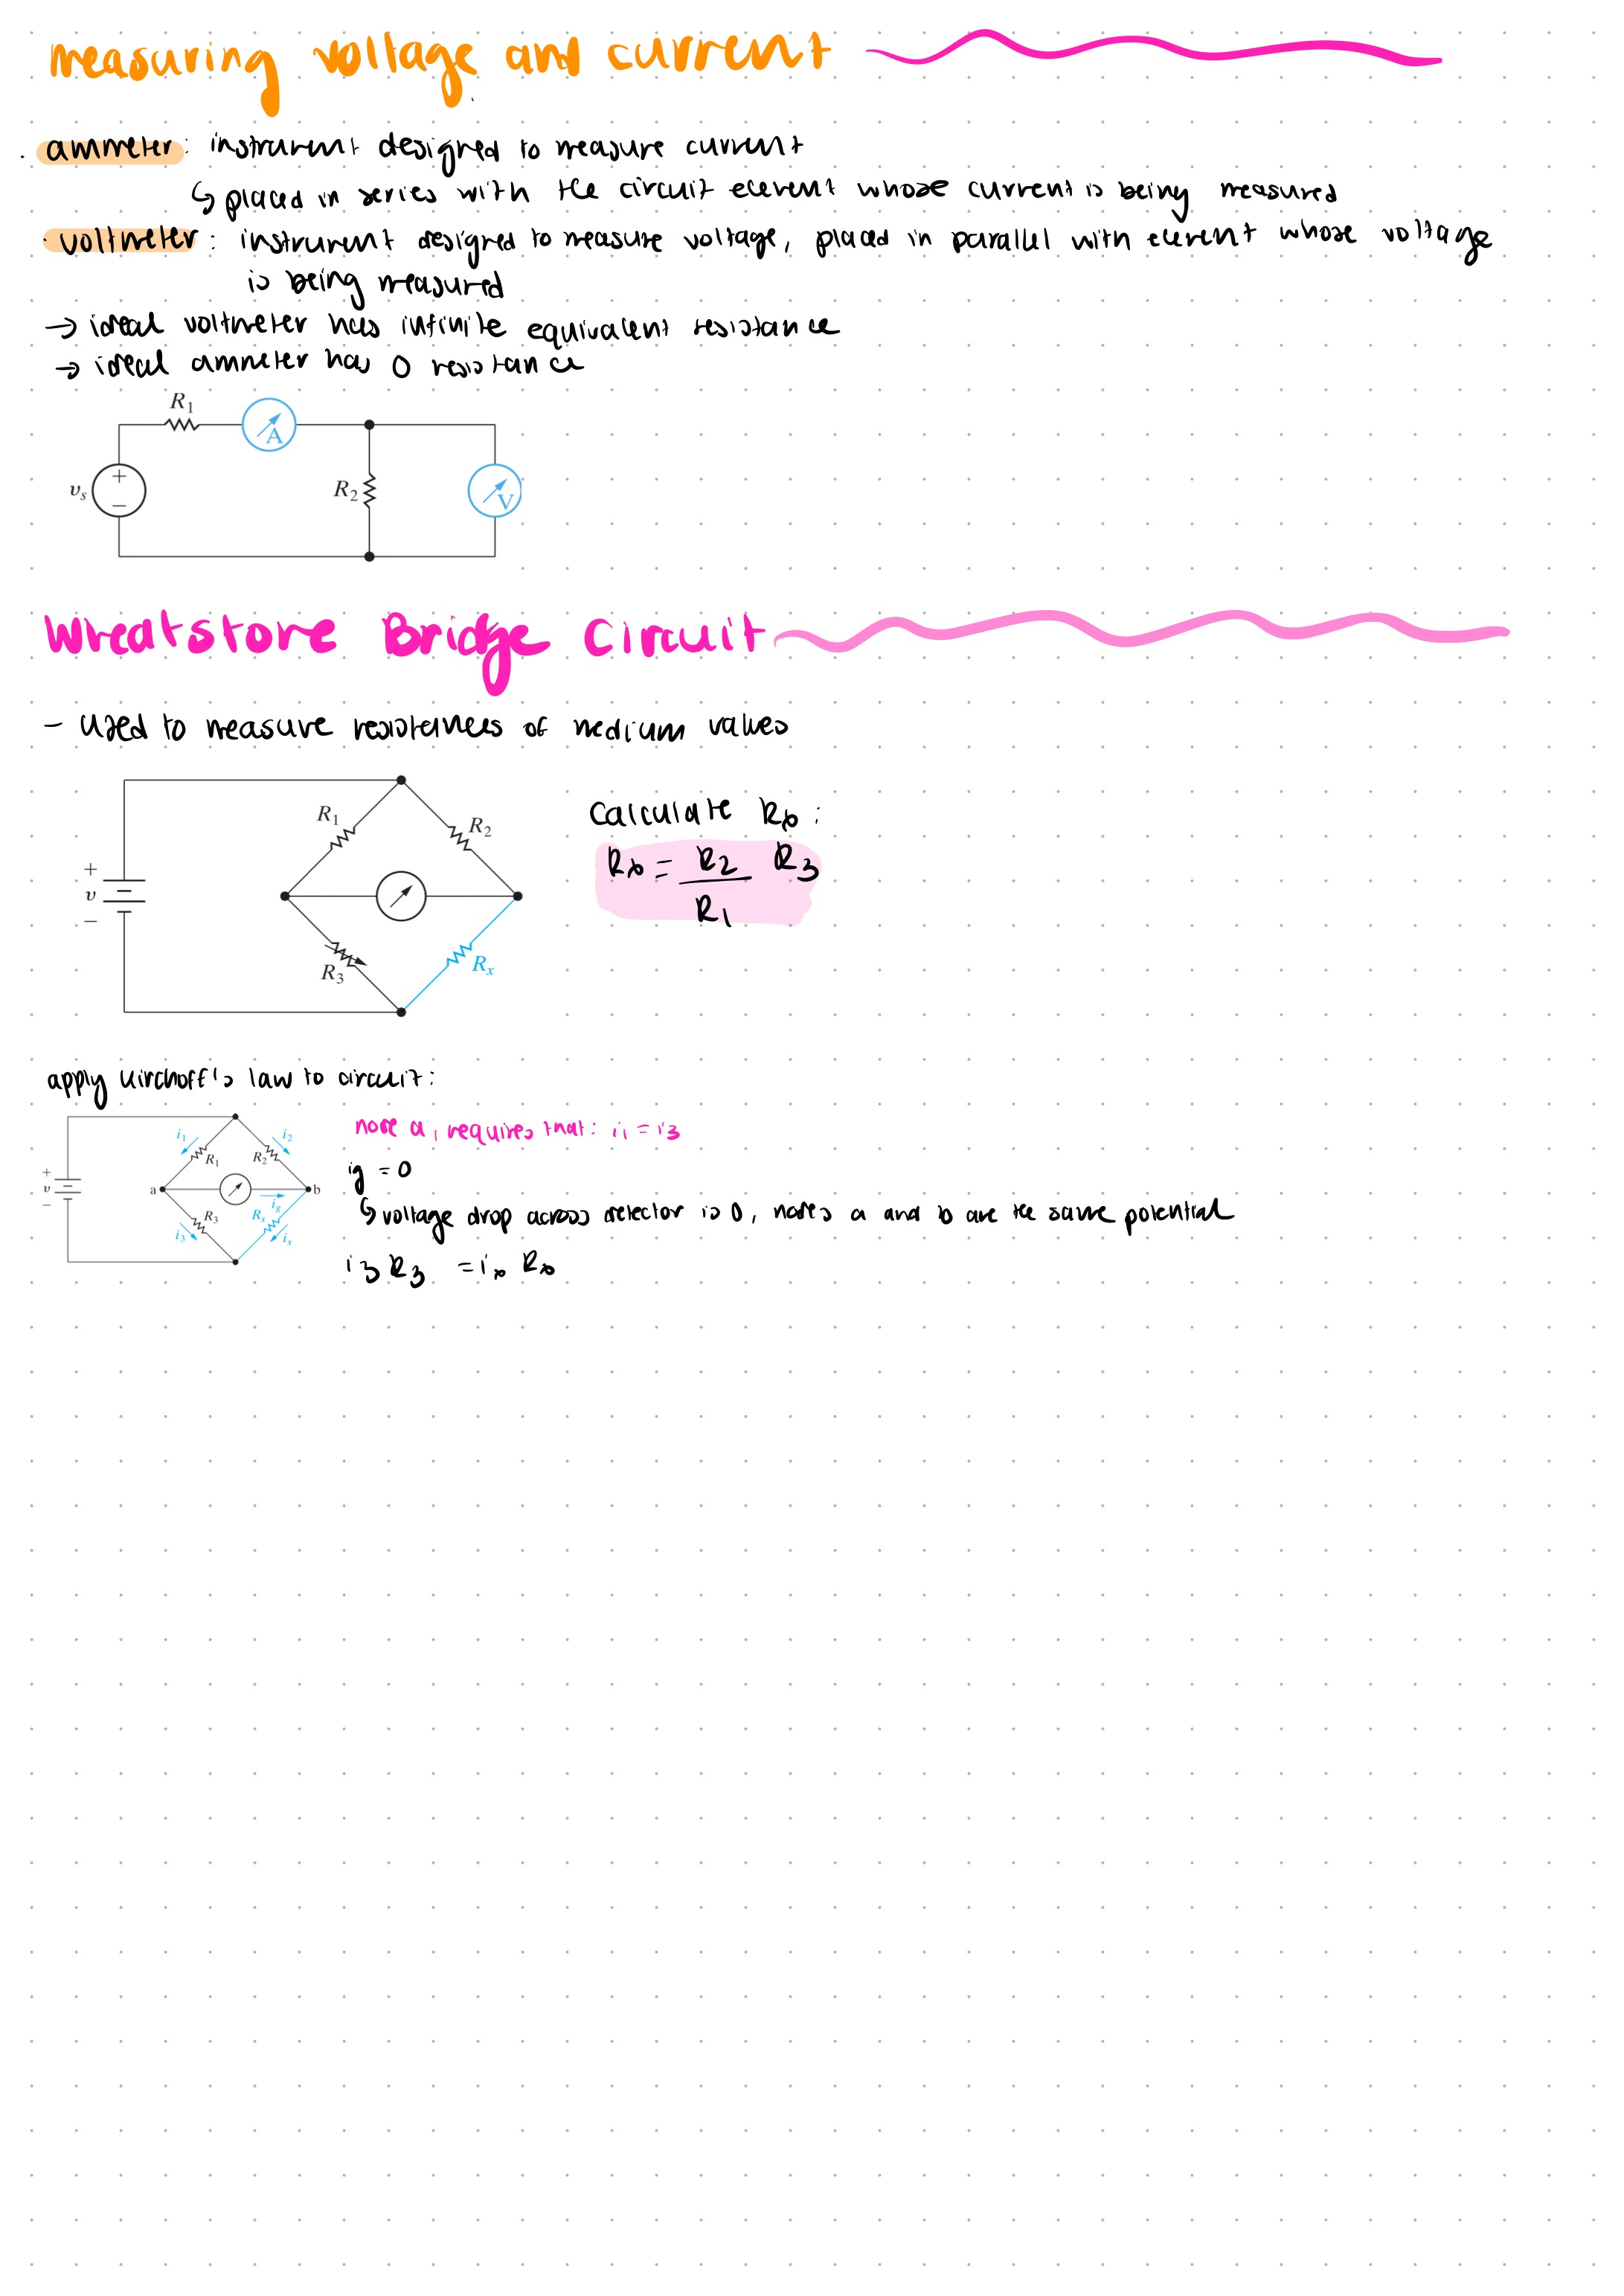 measuring voltage and current
· ammeter: instrument designed to measure current
↳ placed in series with the circuit element whose current is being measured
· voltmeter: instrument designed to measure voltage, placed in parallel with element whose voltage
is being measured
→ ideal voltmeter has infinite equivalent resistance
→ ideal ammeter has 0 resistance
R1
A
+
vs
R2
V
−
Wheatstone Bridge Circuit
- used to measure resistances of medium values
R1
R2
Calculate Rx:
Rx = R2 R3
R1
+
v
−
R3
Rx
apply Kirchoff's law to circuit:
node a, requires that: i1 = i3
i1
i2
R1
R2
+
v
−
a
b
ig = 0
ig
R3
Rx
↳ voltage drop across detector is 0, nodes a and b are the same potential
i3
ix
i3 R3 = ix Rx